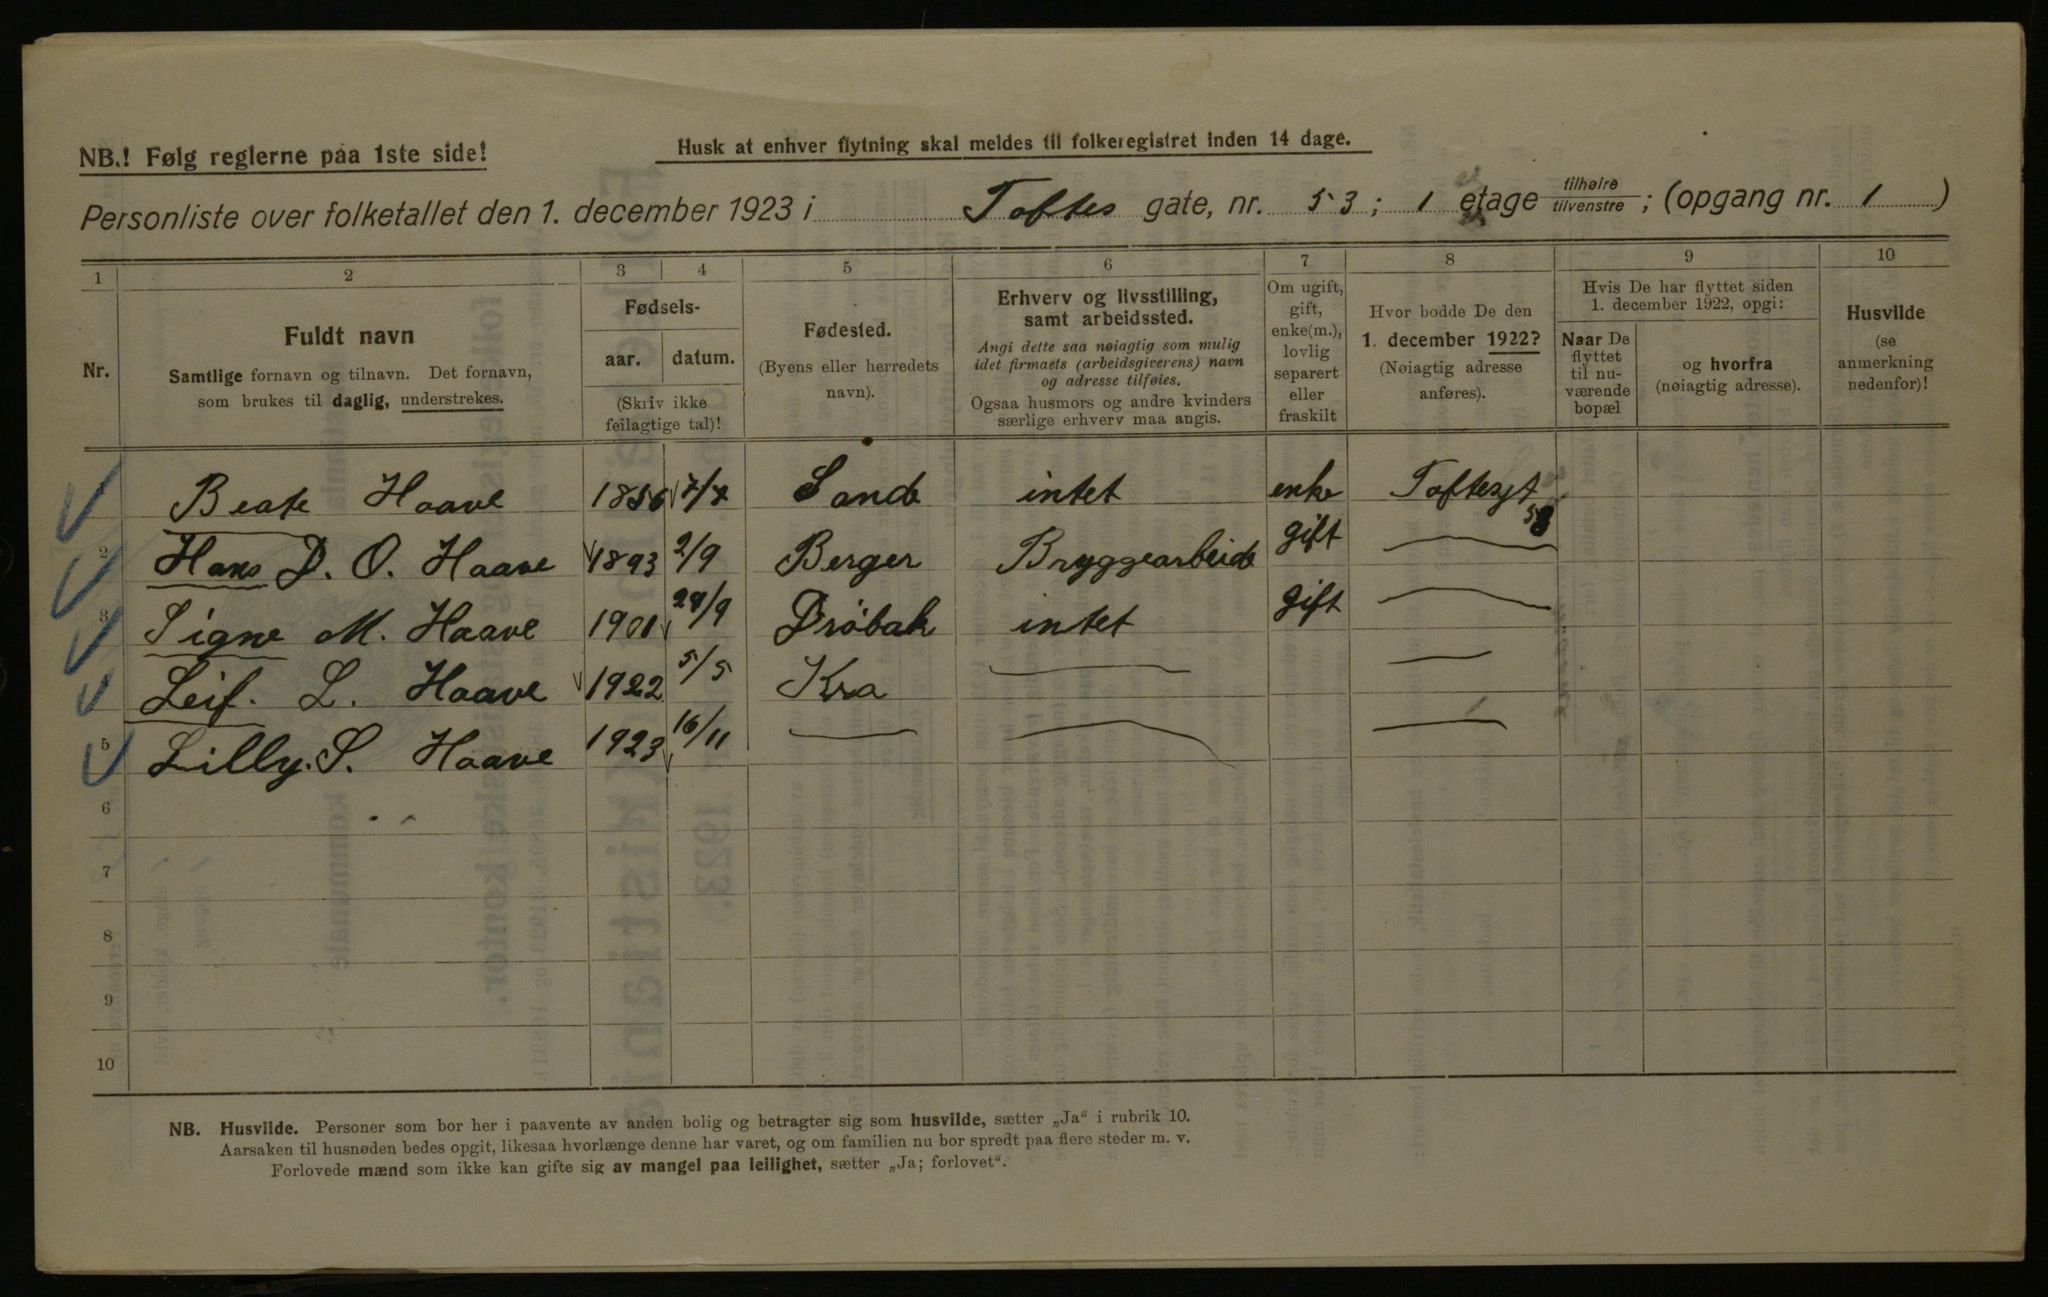 NB.! Følg reglerne paa 1ste side!
Husk at enhver flytning skal meldes til folkeregistret inden 14 dage.
Personliste over folketallet den 1. december 1923 i Toftes gate, nr. 53; 1 etage tilhøire tilvenstre; (opgang nr. 1)
1 2 3 4 5 6 7 8 9 10
Nr.
Fuldt navn
Samtlige fornavn og tilnavn. Det fornavn,
som brukes til daglig, understrekes.
Fødsels-
aar. datum.
(Skriv ikke
feilagtige tal)!
Fødested.
(Byens eller herredets
navn).
Erhverv og livsstilling,
samt arbeidssted.
Angi dette saa nøiagtig som mulig
idet firmaets (arbeidsgiverens) navn
og adresse tilføies.
Ogsaa husmors og andre kvinders
særlige erhverv maa angis.
Om ugift,
gift,
enke(m.),
lovlig
separert
eller
fraskilt
Hvor bodde De den
1. december 1922?
(Nøiagtig adresse
anføres).
Hvis De har flyttet siden
1. december 1922, opgi:
Naar De
flyttet
til nu-
værende
bopæl
og hvorfra
(nøiagtig adresse).
Husvilde
(se
anmerkning
nedenfor)!
Beate Haave 1856 7/7 Sande intet enke Toftesgt 53
2 Hans D. O. Haave 1893 2/9 Berger Bryggearbeide gift —
3 Signe M. Haave 1901 24/9 Dröbak intet gift —
Leif. L. Haave 1922 5/5 Kra — —
5 Lilly. S. Haave 1923 16/11 — — —
6
7
8
9
10
NB. Husvilde. Personer som bor her i paavente av anden bolig og betragter sig som husvilde, sætter „Ja“ i rubrik 10.
Aarsaken til husnøden bedes opgit, likesaa hvorlænge denne har varet, og om familien nu bor spredt paa flere steder m. v.
Forlovede mænd som ikke kan gifte sig av mangel paa leilighet, sætter „Ja; forlovet“.